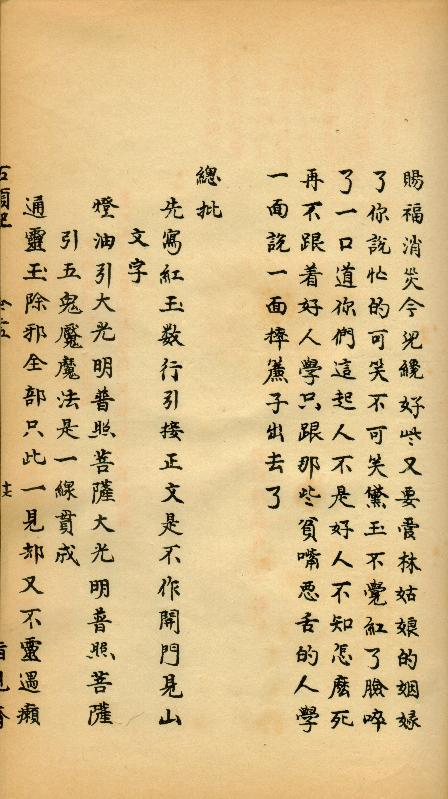 賜福消灾今兒纔好些又要管林姑娘的姻縁
了你説忙的可笑不可笑黛玉不覺紅了臉啐
了一口道你們這起人不是好人不知怎麽死
再不跟着好人學只跟那些貧嘴惡舌的人學
一面說一面摔簾子出去了
總批
先寫紅玉数行引接正文是不作開門見山
文字
燈油引大光明普照菩薩大光明普照菩薩
引五鬼魘魔法是一線貫成
通靈玉除邪全部只此一見却又不靈遇癩
石頭記